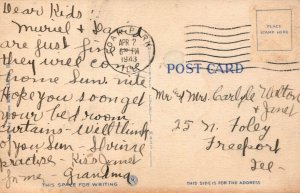 Dear Kids:
Muriel &
are just fine
they were com
home Sun. nite
Hope you soon get
your bed room
curtains - Will think
of you Sun - Irvine
practises - Kiss Janet
for me - Grandma
THIS SPACE FOR WRITING
OAK PARK
APR 2
6 PM
1943
ILL.
PLACE
STAMP HERE
POST CARD
Mr & Mrs. Carlyle
& Janet
25 N. Foley
Freeport
Ill
THIS SIDE IS FOR THE ADDRESS